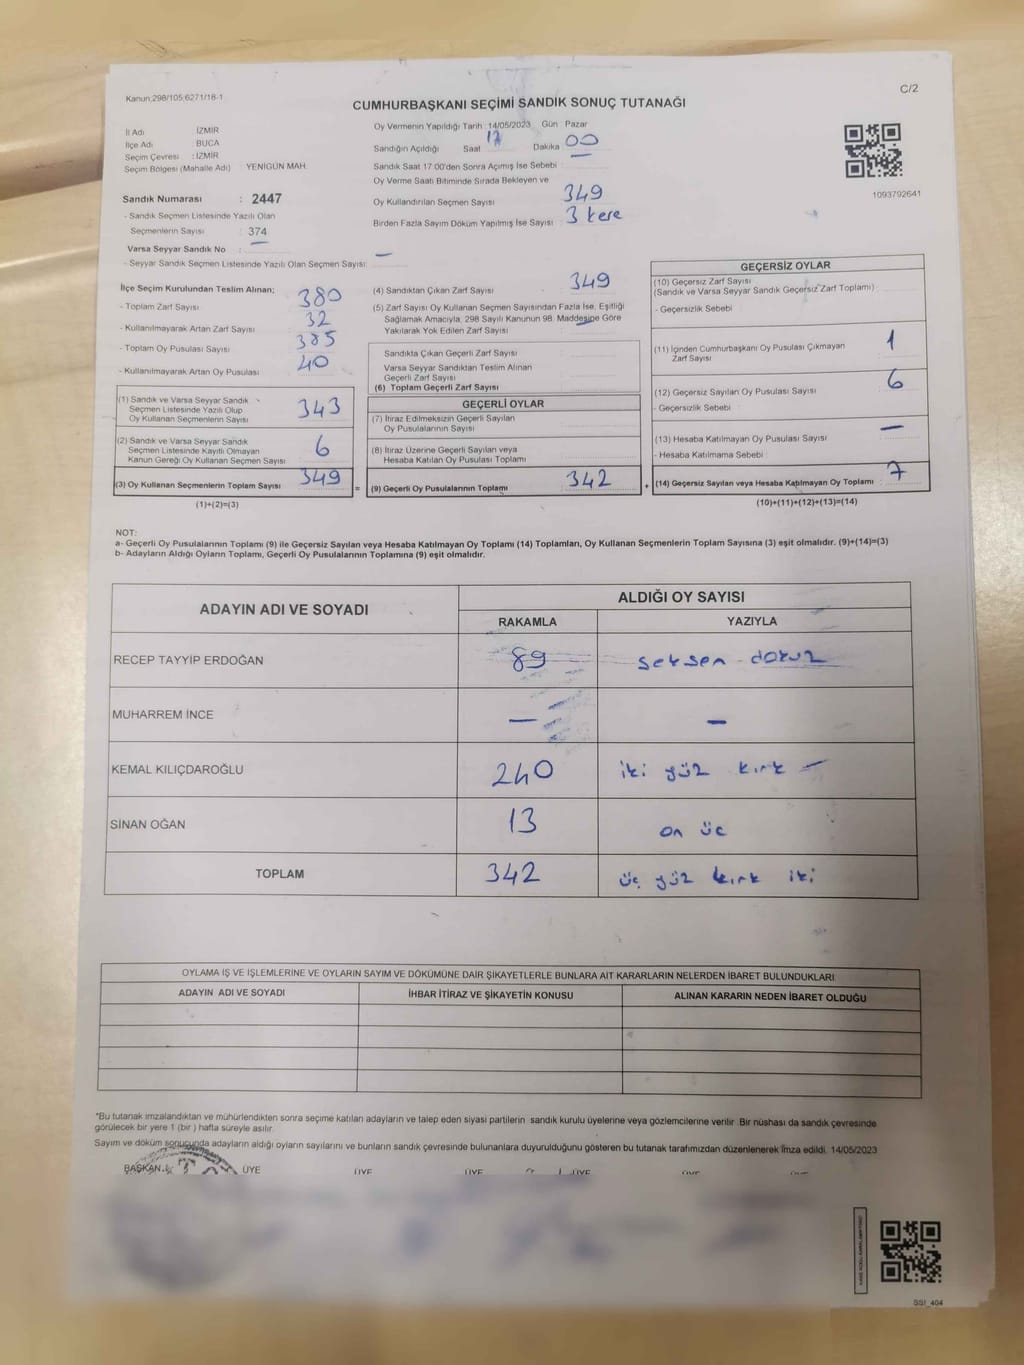 Kanun:298/105,6271/18-1
C/2
CUMHURBAŞKANI SEÇİMİ SANDIK SONUÇ TUTANAĞI
İl Adı İZMİR
İlçe Adı BUCA
Seçim Çevresi : İZMİR
Seçim Bölgesi (Mahalle Adı) YENİGÜN MAH.
Sandık Numarası : 2447
- Sandık Seçmen Listesinde Yazılı Olan
Seçmenlerin Sayısı : 374
Varsa Seyyar Sandık No : —
- Seyyar Sandık Seçmen Listesinde Yazılı Olan Seçmen Sayısı: —
Oy Vermenin Yapıldığı Tarih : 14/05/2023 Gün Pazar
Sandığın Açıldığı Saat 17 Dakika 00
Sandık Saat 17.00'den Sonra Açımış İse Sebebi : —
Oy Verme Saati Bitiminde Sırada Bekleyen ve
Oy Kullandırılan Seçmen Sayısı : 349
Birden Fazla Sayım Döküm Yapılmış İse Sayısı : 3 kere
1093792641
İlçe Seçim Kurulundan Teslim Alınan;
- Toplam Zarf Sayısı 380
- Kullanılmayarak Artan Zarf Sayısı 32
- Toplam Oy Pusulası Sayısı 385
- Kullanılmayarak Artan Oy Pusulası 40
(1) Sandık ve Varsa Seyyar Sandık
Seçmen Listesinde Yazılı Olup
Oy Kullanan Seçmenlerin Sayısı 343
(2) Sandık ve Varsa Seyyar Sandık
Seçmen Listesinde Kayıtlı Olmayan
Kanun Gereği Oy Kullanan Seçmen Sayısı 6
(3) Oy Kullanan Seçmenlerin Toplam Sayısı 349
(1)+(2)=(3)
(4) Sandıktan Çıkan Zarf Sayısı 349
(5) Zarf Sayısı Oy Kullanan Seçmen Sayısından Fazla İse, Eşitliği
Sağlamak Amacıyla, 298 Sayılı Kanunun 98. Maddesine Göre
Yakılarak Yok Edilen Zarf Sayısı —
Sandıkta Çıkan Geçerli Zarf Sayısı
Varsa Seyyar Sandıktan Teslim Alınan
Geçerli Zarf Sayısı
(6) Toplam Geçerli Zarf Sayısı
GEÇERLİ OYLAR
(7) İtiraz Edilmeksizin Geçerli Sayılan
Oy Pusulalarının Sayısı
(8) İtiraz Üzerine Geçerli Sayılan veya
Hesaba Katılan Oy Pusulası Toplamı
= (9) Geçerli Oy Pusulalarının Toplamı 342
GEÇERSİZ OYLAR
(10) Geçersiz Zarf Sayısı
(Sandık ve Varsa Seyyar Sandık Geçersiz Zarf Toplamı)
- Geçersizlik Sebebi
(11) İçinden Cumhurbaşkanı Oy Pusulası Çıkmayan
Zarf Sayısı 1
(12) Geçersiz Sayılan Oy Pusulası Sayısı 6
- Geçersizlik Sebebi
(13) Hesaba Katılmayan Oy Pusulası Sayısı —
- Hesaba Katılmama Sebebi
+ (14) Geçersiz Sayılan veya Hesaba Katılmayan Oy Toplamı 7
(10)+(11)+(12)+(13)=(14)
NOT:
a- Geçerli Oy Pusulalarının Toplamı (9) ile Geçersiz Sayılan veya Hesaba Katılmayan Oy Toplamı (14) Toplamları, Oy Kullanan Seçmenlerin Toplam Sayısına (3) eşit olmalıdır. (9)+(14)=(3)
b- Adayların Aldığı Oyların Toplamı, Geçerli Oy Pusulalarının Toplamına (9) eşit olmalıdır.
ADAYIN ADI VE SOYADI
ALDIĞI OY SAYISI
RAKAMLA YAZIYLA
RECEP TAYYİP ERDOĞAN 89 seksen dokuz
MUHARREM İNCE — —
KEMAL KILIÇDAROĞLU 240 iki yüz kırk —
SİNAN OĞAN 13 on üç
TOPLAM 342 üç yüz kırk iki
OYLAMA İŞ VE İŞLEMLERİNE VE OYLARIN SAYIM VE DÖKÜMÜNE DAİR ŞİKAYETLERLE BUNLARA AİT KARARLARIN NELERDEN İBARET BULUNDUKLARI
ADAYIN ADI VE SOYADI İHBAR İTİRAZ VE ŞİKAYETİN KONUSU ALINAN KARARIN NEDEN İBARET OLDUĞU
*Bu tutanak imzalandıktan ve mühürlendikten sonra seçime katılan adayların ve talep eden siyasi partilerin sandık kurulu üyelerine veya gözlemcilerine verilir. Bir nüshası da sandık çevresinde
görülecek bir yere 1 (bir ) hafta süreyle asılır.
Sayım ve döküm sonucunda adayların aldığı oyların sayılarını ve bunların sandık çevresinde bulunanlara duyurulduğunu gösteren bu tutanak tarafımızdan düzenlenerek imza edildi. 14/05/2023
BAŞKAN ÜYE ÜYE ÜYE ÜYE ÜYE
SSI_404